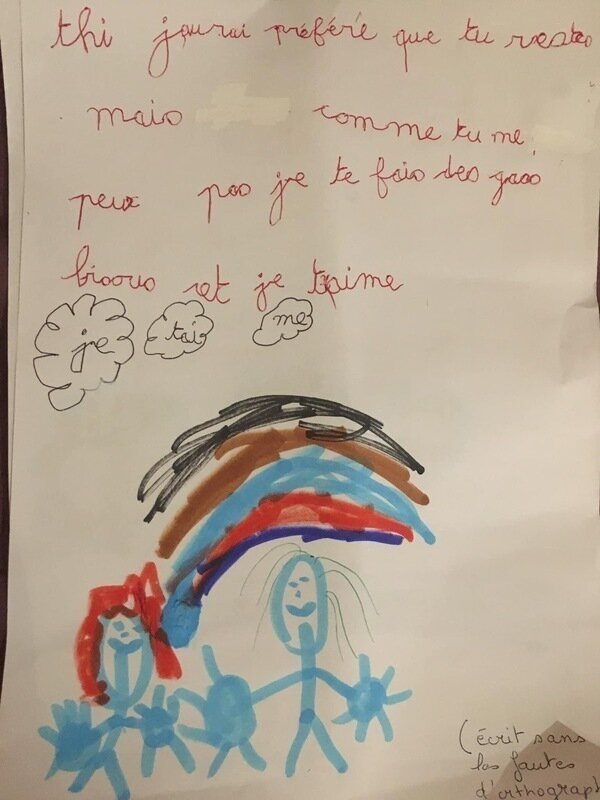 thi jaurai préféré que tu restes
mais comme tu me
peux pas je te fais des gros
bisous et je t'aime
je tai me
(écrit sans
les fautes
d'orthograph